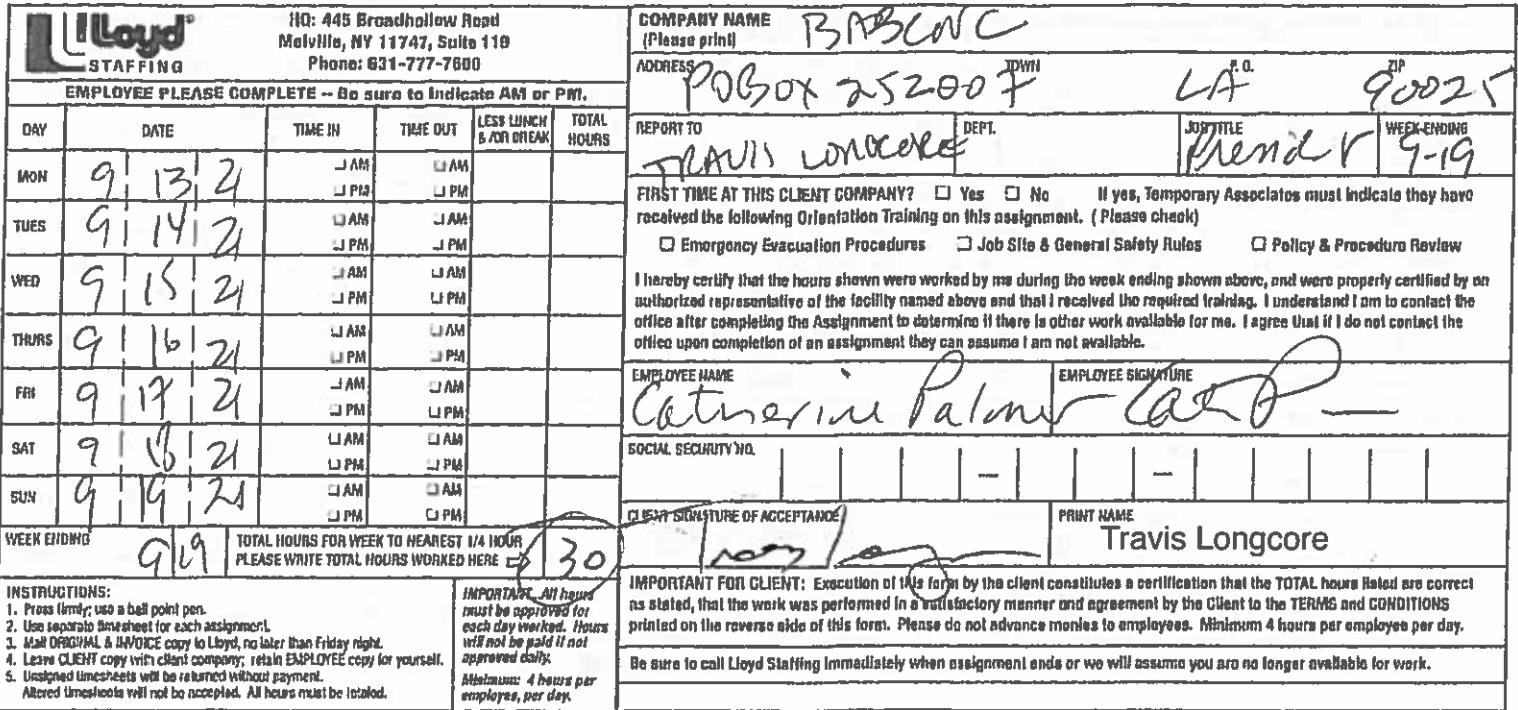 Lloyd
STAFFING
HQ: 445 Broadhollow Road
Melville, NY 11747, Suite 119
Phone: 631-777-7600
EMPLOYEE PLEASE COMPLETE -- Be sure to Indicate AM or PM.
DAY DATE TIME IN TIME OUT LESS LUNCH & /OR BREAK TOTAL HOURS
MON 9 13 21 AM PM AM PM
TUES 9 14 21 AM PM AM PM
WED 9 15 21 AM PM AM PM
THURS 9 16 21 AM PM AM PM
FRI 9 17 21 AM PM AM PM
SAT 9 18 21 AM PM AM PM
SUN 9 19 21 AM PM AM PM
WEEK ENDING 9 19 TOTAL HOURS FOR WEEK TO NEAREST 1/4 HOUR
PLEASE WRITE TOTAL HOURS WORKED HERE 30
INSTRUCTIONS:
1. Press firmly; use a ball point pen.
2. Use separate timesheet for each assignment.
3. Mail ORIGINAL & INVOICE copy to Lloyd, no later than Friday night.
4. Leave CLIENT copy with client company; retain EMPLOYEE copy for yourself.
5. Unsigned timesheets will be returned without payment.
Altered timesheets will not be accepted. All hours must be totaled.
IMPORTANT. All hours
must be approved for
each day worked. Hours
will not be paid if not
approved daily.
Minimum: 4 hours per
employee, per day.
COMPANY NAME BABCNC
(Please print)
ADDRESS TOWN P. O. ZIP
PO BOX 252007 LA 90025
REPORT TO DEPT. JOB TITLE WEEK-ENDING
TRAVIS LONGCORE 9-19
FIRST TIME AT THIS CLIENT COMPANY? Yes No If yes, Temporary Associates must indicate they have
received the following Orientation Training on this assignment. ( Please check)
Emergency Evacuation Procedures Job Site & General Safety Rules Policy & Procedure Review
I hereby certify that the hours shown were worked by me during the week ending shown above, and were properly certified by an
authorized representative of the facility named above and that I received the required training. I understand I am to contact the
office after completing the Assignment to determine if there is other work available for me. I agree that if I do not contact the
office upon completion of an assignment they can assume I am not available.
EMPLOYEE NAME EMPLOYEE SIGNATURE
Catherine Palmer
SOCIAL SECURITY NO.
CLIENT SIGNATURE OF ACCEPTANCE PRINT NAME
Travis Longcore
IMPORTANT FOR CLIENT: Execution of this form by the client constitutes a certification that the TOTAL hours listed are correct
as stated, that the work was performed in a satisfactory manner and agreement by the Client to the TERMS and CONDITIONS
printed on the reverse side of this form. Please do not advance monies to employees. Minimum 4 hours per employee per day.
Be sure to call Lloyd Staffing immediately when assignment ends or we will assume you are no longer available for work.